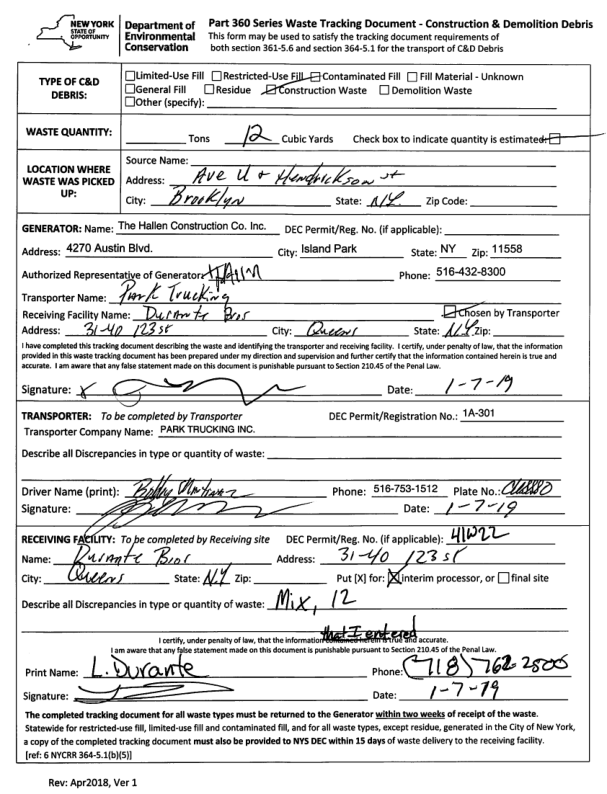 NEW YORK
STATE OF
OPPORTUNITY
Department of
Environmental
Conservation
Part 360 Series Waste Tracking Document - Construction & Demolition Debris
This form may be used to satisfy the tracking document requirements of
both section 361-5.6 and section 364-5.1 for the transport of C&D Debris
TYPE OF C&D
DEBRIS:
Limited-Use Fill Restricted-Use Fill Contaminated Fill Fill Material - Unknown
General Fill Residue Construction Waste Demolition Waste
Other (specify):
WASTE QUANTITY: Tons 12 Cubic Yards Check box to indicate quantity is estimated
LOCATION WHERE
WASTE WAS PICKED
UP:
Source Name:
Address: Ave U + Hendrickson st
City: Brooklyn State: N.Y. Zip Code:
GENERATOR: Name: The Hallen Construction Co. Inc. DEC Permit/Reg. No. (if applicable):
Address: 4270 Austin Blvd. City: Island Park State: NY Zip: 11558
Authorized Representative of Generator: Phone: 516-432-8300
Transporter Name: Park Trucking
Receiving Facility Name: Durante Bros Chosen by Transporter
Address: 31-40 123 st City: Queens State: N.Y. Zip:
I have completed this tracking document describing the waste and identifying the transporter and receiving facility. I certify, under penalty of law, that the information
provided in this waste tracking document has been prepared under my direction and supervision and further certify that the information contained herein is true and
accurate. I am aware that any false statement made on this document is punishable pursuant to Section 210.45 of the Penal Law.
Signature: X Date: 1-7-19
TRANSPORTER: To be completed by Transporter DEC Permit/Registration No.: 1A-301
Transporter Company Name: PARK TRUCKING INC.
Describe all Discrepancies in type or quantity of waste:
Driver Name (print): Bobby Martinez Phone: 516-753-1512 Plate No.:
Signature: Date: 1-7-19
RECEIVING FACILITY: To be completed by Receiving site DEC Permit/Reg. No. (if applicable): 41W22
Name: Durante Bros Address: 31-40 123 st
City: Queens State: N.Y Zip: Put [X] for: X interim processor, or final site
Describe all Discrepancies in type or quantity of waste: Mix, 12
that I entered
I certify, under penalty of law, that the information contained herein is true and accurate.
I am aware that any false statement made on this document is punishable pursuant to Section 210.45 of the Penal Law.
Print Name: L. Durante Phone: (718) 762-2500
Signature: Date: 1-7-19
The completed tracking document for all waste types must be returned to the Generator within two weeks of receipt of the waste.
Statewide for restricted-use fill, limited-use fill and contaminated fill, and for all waste types, except residue, generated in the City of New York,
a copy of the completed tracking document must also be provided to NYS DEC within 15 days of waste delivery to the receiving facility.
[ref: 6 NYCRR 364-5.1(b)(5)]
Rev: Apr2018, Ver 1